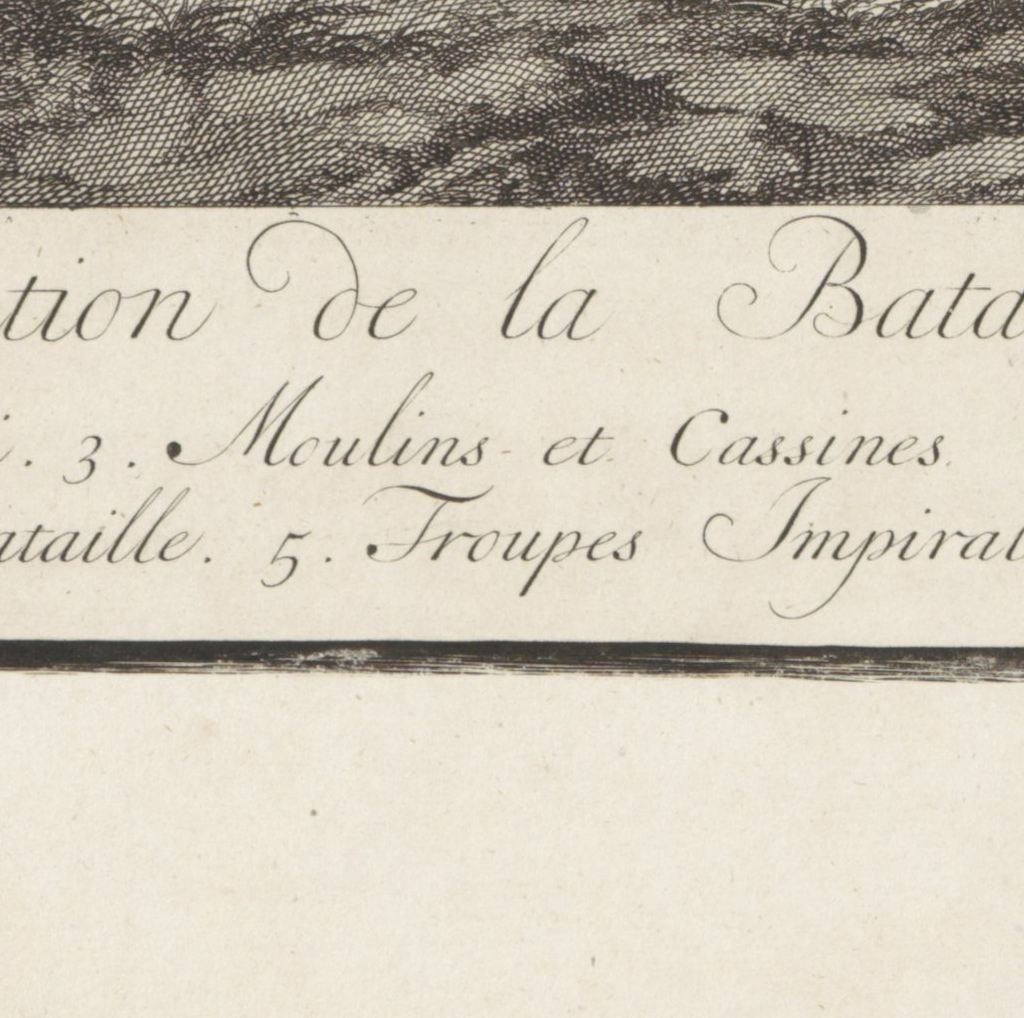 tion de la Bata
i. 3. Moulins et Cassines.
ataille. 5. Troupes Impiral